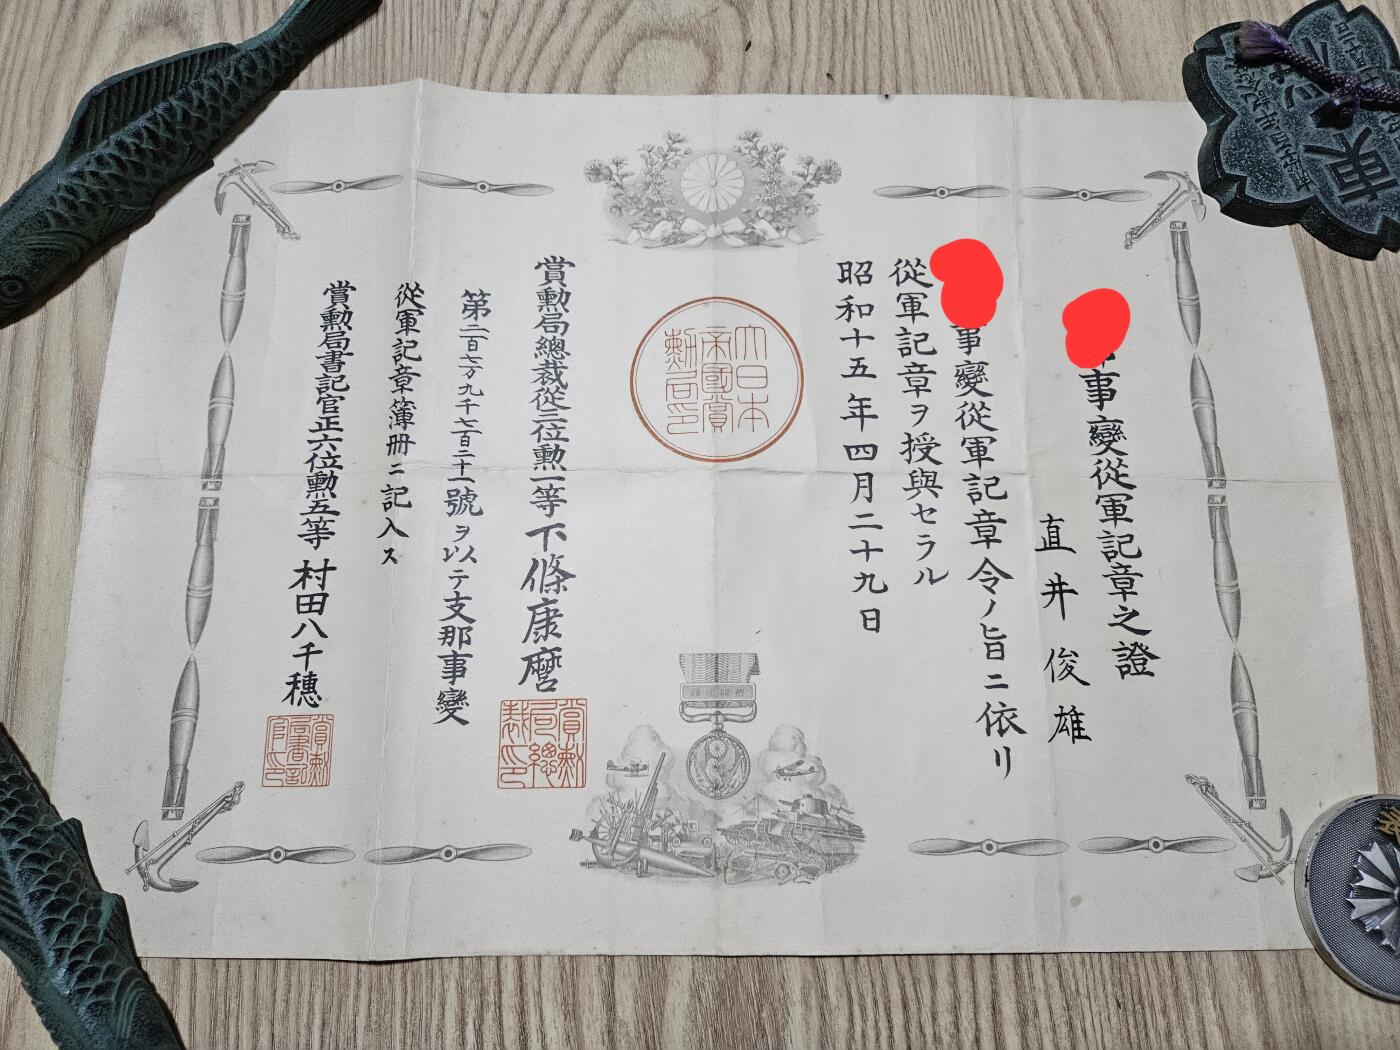 事變從軍記章之證
直井俊雄
事變從軍記章令ノ旨ニ依リ
從軍記章ヲ授與セラル
昭和十五年四月二十九日
大日本
帝國賞
勲局印
賞勲局總裁從三位勲一等下條康麿
賞勲
局總
裁印
第二百七万九千七百二十一號ヲ以テ支那事變
從軍記章簿册ニ記入ス
賞勲局書記官正六位勲五等村田八千穗
賞勲
局書記
官印